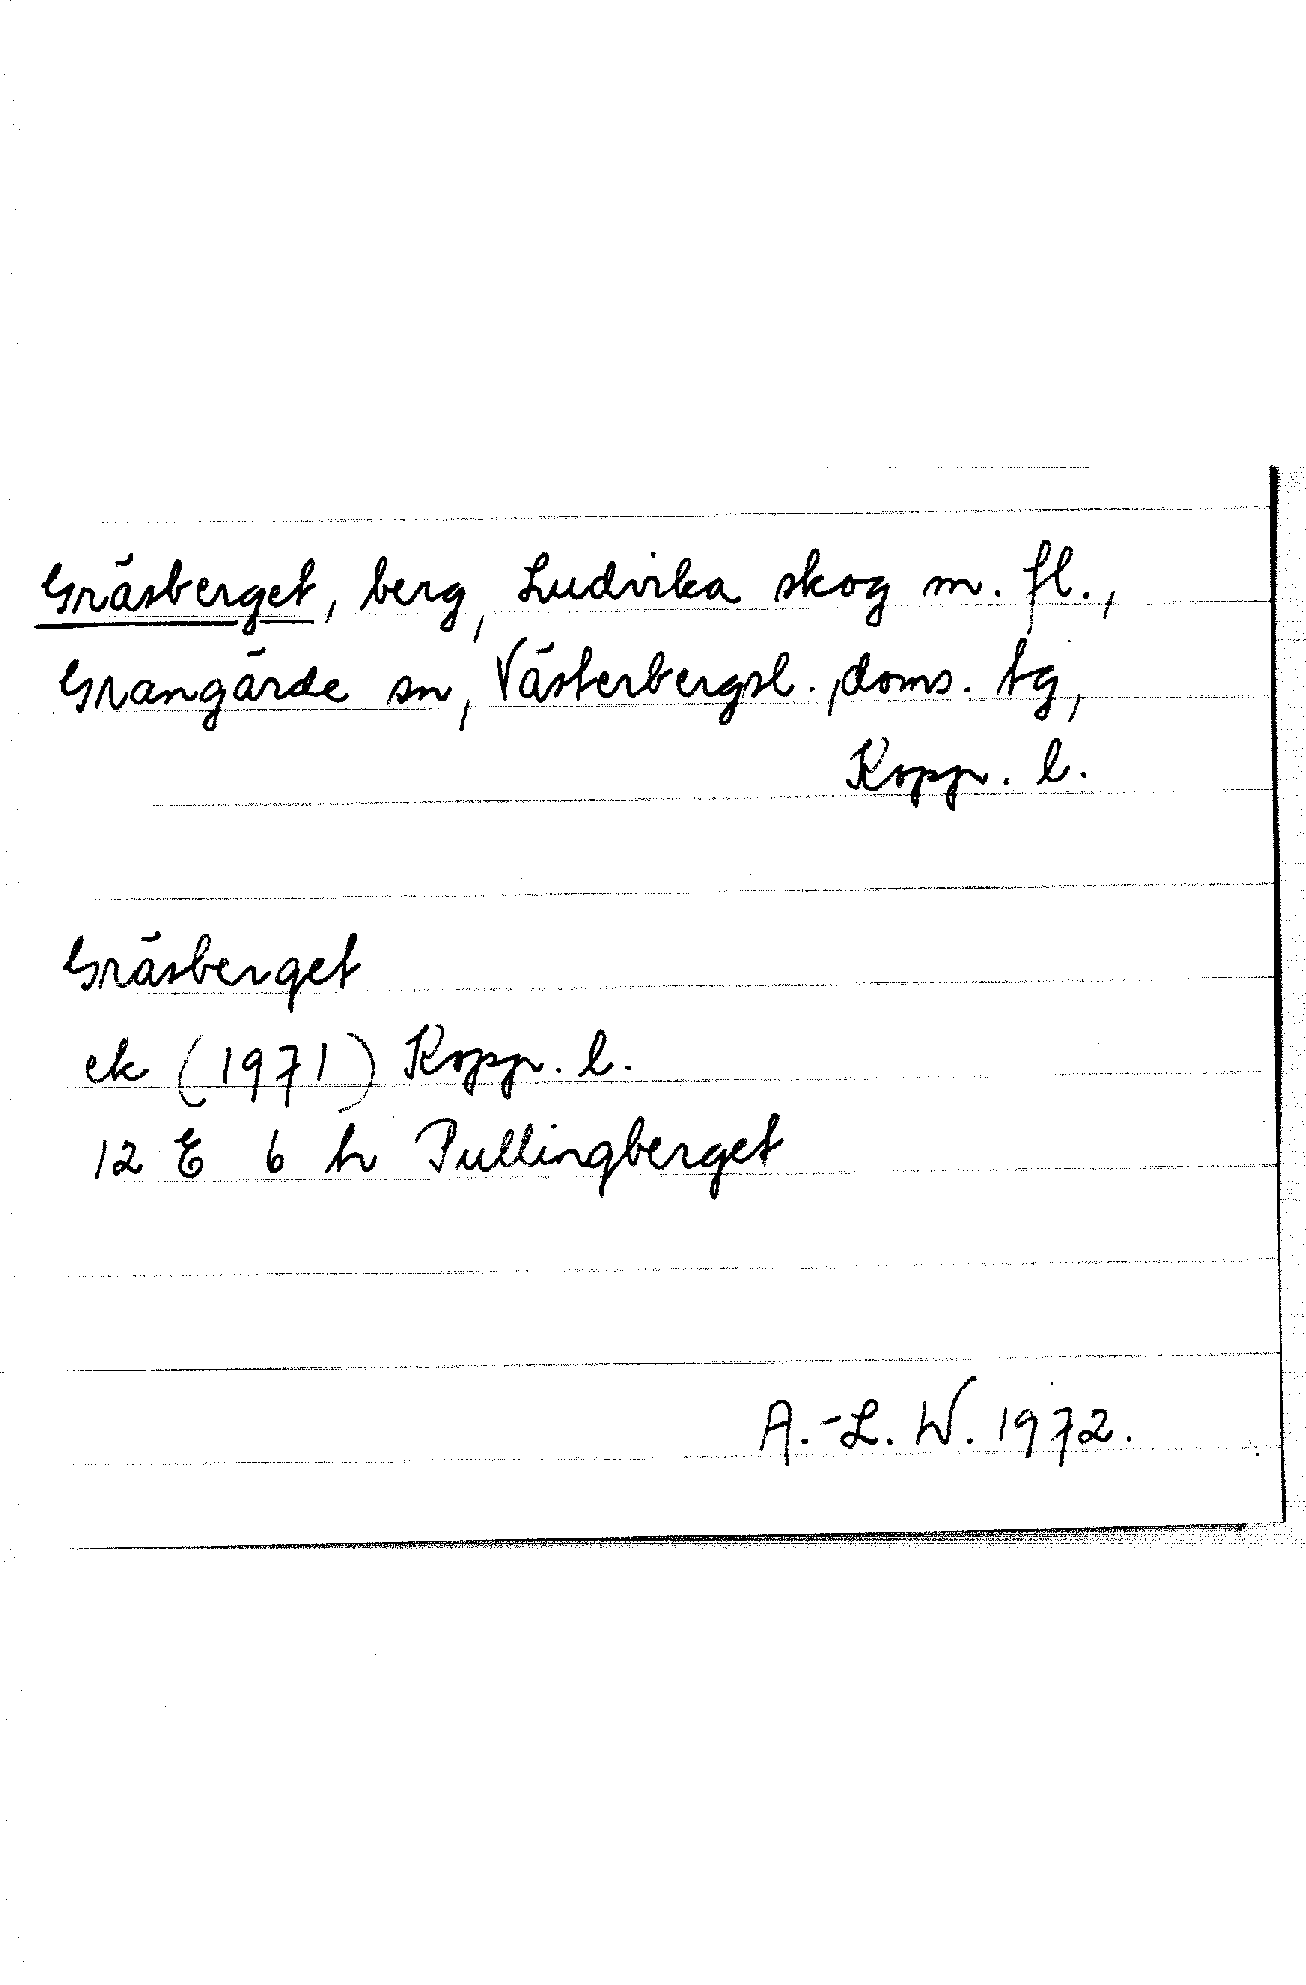 Gräsberget, berg, Ludvika skog m. fl.,
Grangärde sn, Västerbergsl., doms. tg,
Kopp. l.
Gräsberget
ek (1971) Kopp. l.
12 E 6 h Pullingberget
A.-L. W. 1972.